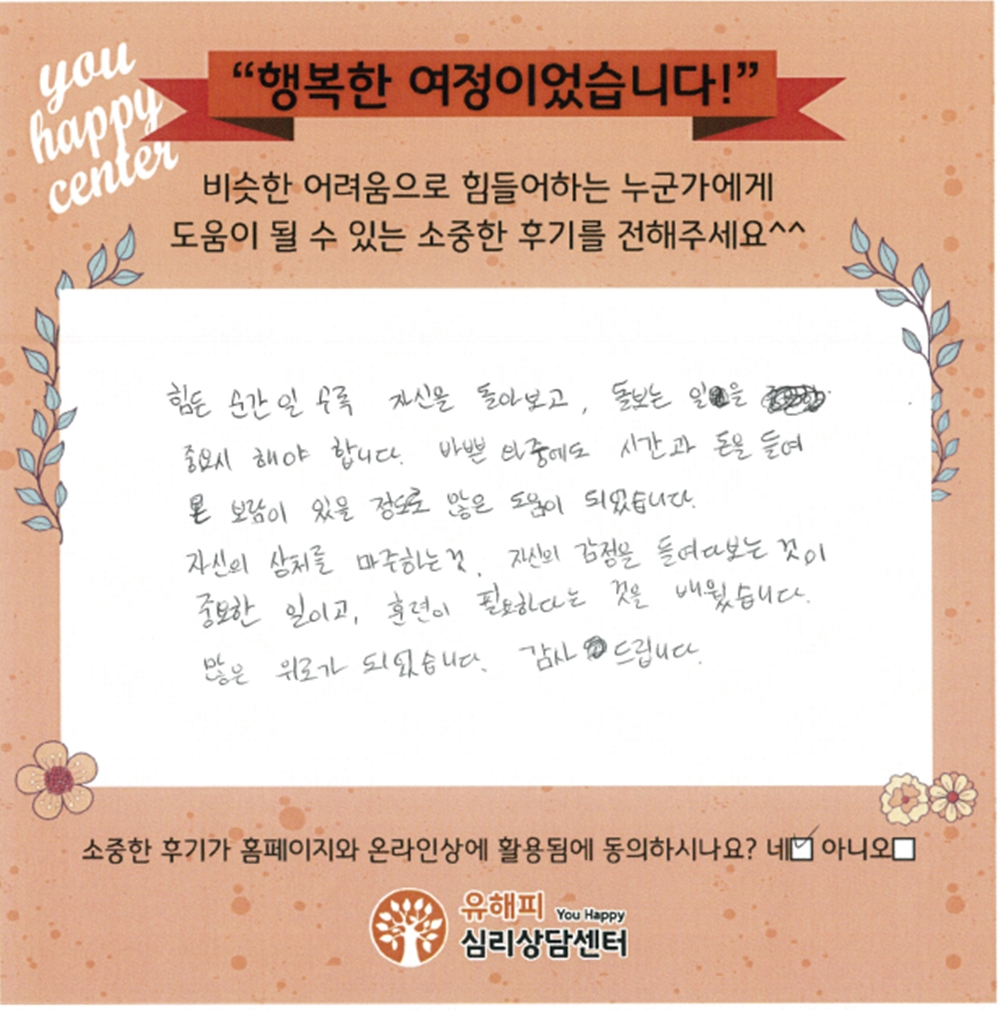 you
happy
center
“행복한 여정이었습니다!”
비슷한 어려움으로 힘들어하는 누군가에게
도움이 될 수 있는 소중한 후기를 전해주세요^^
힘든 순간일 수록 자신을 돌아보고, 돌보는 일을
중요시 해야 합니다. 바쁜 와중에도 시간과 돈을 들여
보람이 있을 정도로 많은 도움이 되었습니다.
자신의 상처를 마주하는것, 자신의 감정을 들여다보는 것이
중요한 일이고, 훈련이 필요하다는 것을 배웠습니다.
많은 위로가 되었습니다. 감사 드립니다.
소중한 후기가 홈페이지와 온라인상에 활용됨에 동의하시나요? 네 아니오
유해피 You Happy
심리상담센터